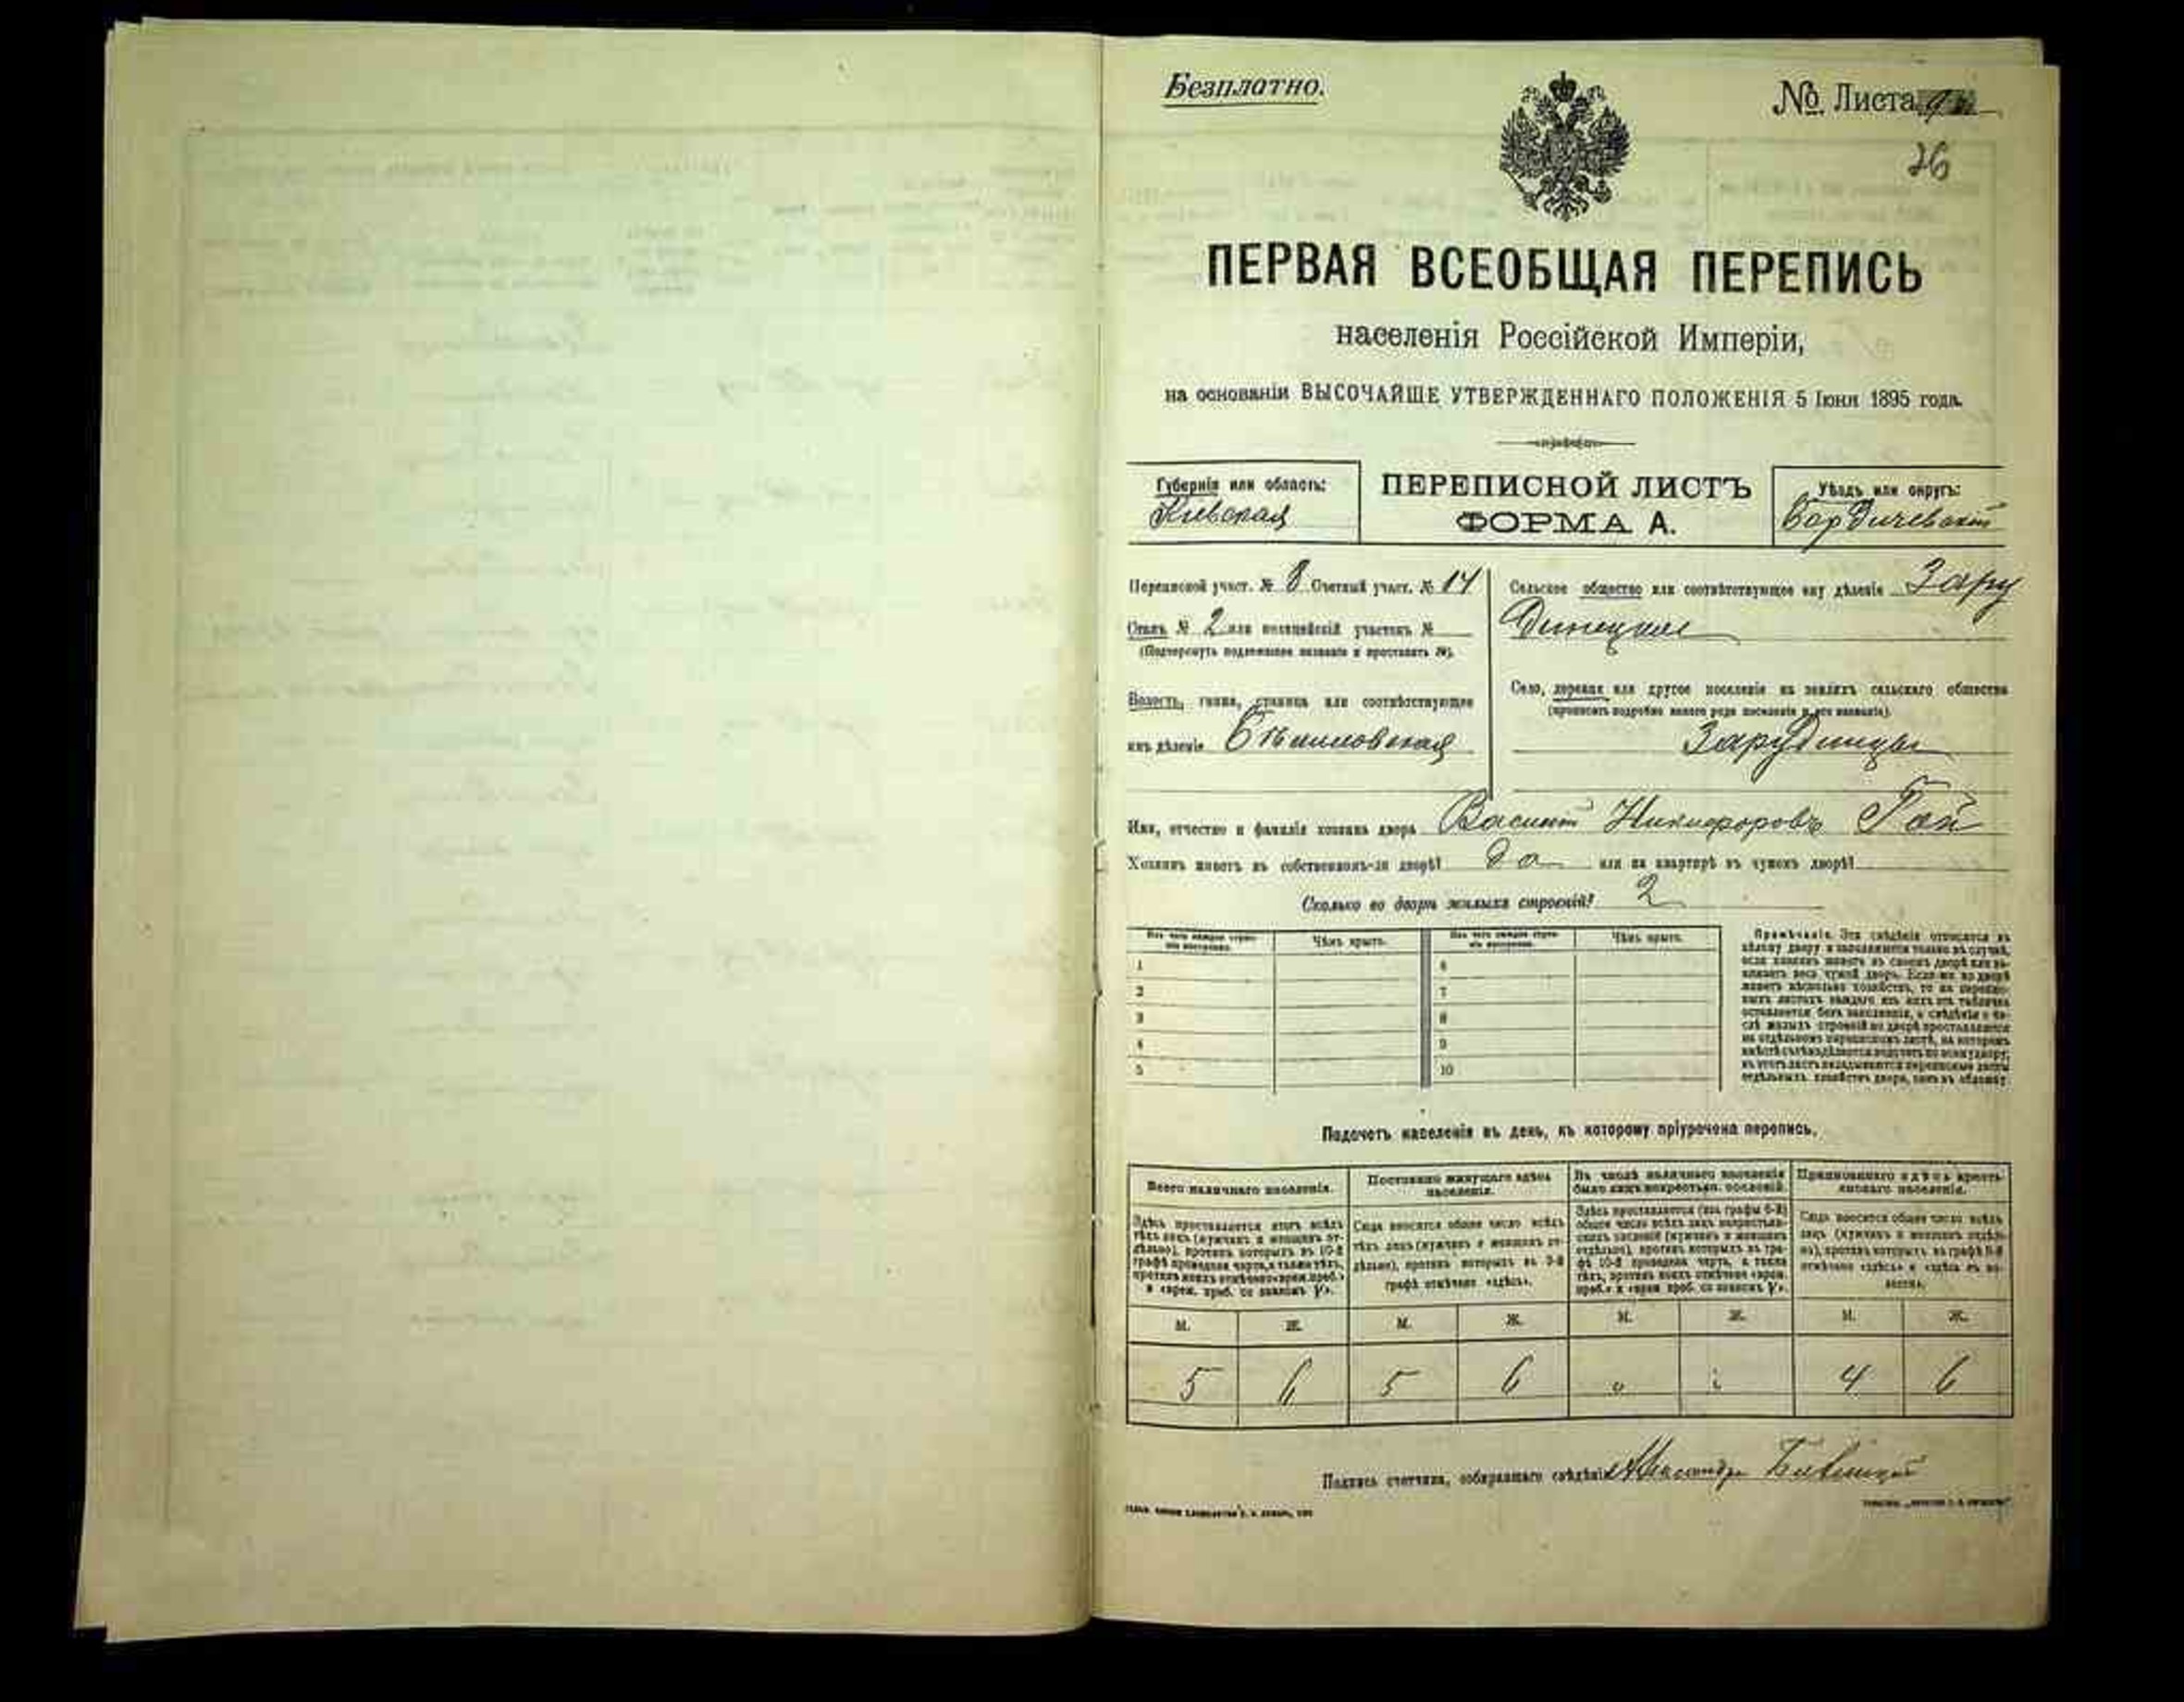 Безплатно.
№ Листа 9
26
ПЕРВАЯ ВСЕОБЩАЯ ПЕРЕПИСЬ
населенія Россійской Имперіи,
на основаніи ВЫСОЧАЙШЕ УТВЕРЖДЕННАГО ПОЛОЖЕНІЯ 5 Іюня 1895 года.
Губернія или область:
Кіевская
ПЕРЕПИСНОЙ ЛИСТЪ
ФОРМА А.
Уѣздъ или округъ:
Бердичевскій
Переписной участ. № 8 Счетный участ. № 14
Станъ № 2 или полицейскій участокъ №
(Подчеркнуть подлежащее названіе и проставить №).
Волость, гмина, станица или соотвѣтствующее
имъ дѣленіе
Сельское общество или соотвѣтствующее ему дѣленіе Зару
динецкое
Село, деревня или другое поселеніе на земляхъ сельскаго общества
(прописать подробно какого рода поселеніе и его названіе).
Зарудинцы
Имя, отчество и фамилія хозяина двора Василій Никифоровъ Гай
Хозяинъ живетъ въ собственномъ-ли дворѣ? да или на квартирѣ въ чужомъ дворѣ?
Сколько во дворѣ жилыхъ строеній? 2
Изъ чего каждое строеніе построено.
Чѣмъ крыто.
Изъ чего каждое строеніе построено.
Чѣмъ крыто.
1 6
2 7
3 8
4 9
5 10
Примѣчаніе. Эти свѣдѣнія относятся къ
цѣлому двору и заполняются только въ случаѣ,
если хозяинъ живетъ въ своемъ дворѣ или на-
нимаетъ весь чужой дворъ. Если-же во дворѣ
живетъ нѣсколько хозяйствъ, то на перепис-
ныхъ листахъ каждаго изъ нихъ эта табличка
оставляется безъ заполненія, а свѣдѣнія о чи-
слѣ жилыхъ строеній во дворѣ проставляются
на отдѣльномъ переписномъ листѣ, на которомъ
Подсчетъ населенія въ день, къ которому пріурочена перепись.
Всего наличнаго населенія.
Постоянно живущаго здѣсь
населенія.
Въ числѣ наличнаго населенія
было лицъ некрестьян. сословій.
Приписаннаго здѣсь кресть-
янскаго населенія.
Здѣсь проставляется итогъ всѣхъ
тѣхъ лицъ (мужчинъ и женщинъ от-
дѣльно), противъ которыхъ въ 10-й
графѣ проведена черта, а также тѣхъ,
противъ коихъ отмѣчено «врем. преб.»
и «врем. преб. со знакомъ V».
Сюда вносится общее число всѣхъ
тѣхъ лицъ (мужчинъ и женщинъ от-
дѣльно), противъ которыхъ въ 9-й
графѣ отмѣчено «здѣсь».
Здѣсь проставляется (изъ графы 6-й)
общее число всѣхъ лицъ некрестьян-
скихъ сословій (мужчинъ и женщинъ
отдѣльно), противъ которыхъ въ гра-
фѣ 10-й проведена черта, а также
тѣхъ, противъ коихъ отмѣчено «врем.
преб.» и «врем. преб. со знакомъ V».
Сюда вносится общее число всѣхъ
лицъ (мужчинъ и женщинъ отдѣль-
но), противъ которыхъ въ графѣ 8-й
отмѣчено «здѣсь» и «здѣсь въ во-
лости».
М. Ж. М. Ж. М. Ж. М. Ж.
5 6 5 6 4 6
Подпись счетчика, собиравшаго свѣдѣнія